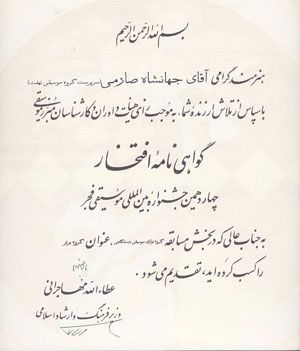 بسم الله الرحمن الرحیم
هنرمند گرامی آقای جهانشاه صارمی (سرپرست گروه موسیقی نهفت)
با سپاس از تلاش ارزنده شما، به موجب رای هیئت داوران و کارشناسان هنر موسیقی
گواهی نامه افتخار
چهاردهمین جشنواره بین المللی موسیقی فجر
به جناب عالی که در بخش مسابقه گروه نوازی موسیقی دستگاهی عنوان گروه برتر
را کسب کرده اید، تقدیم می شود.
عطاءالله مهاجرانی
وزیر فرهنگ و ارشاد اسلامی